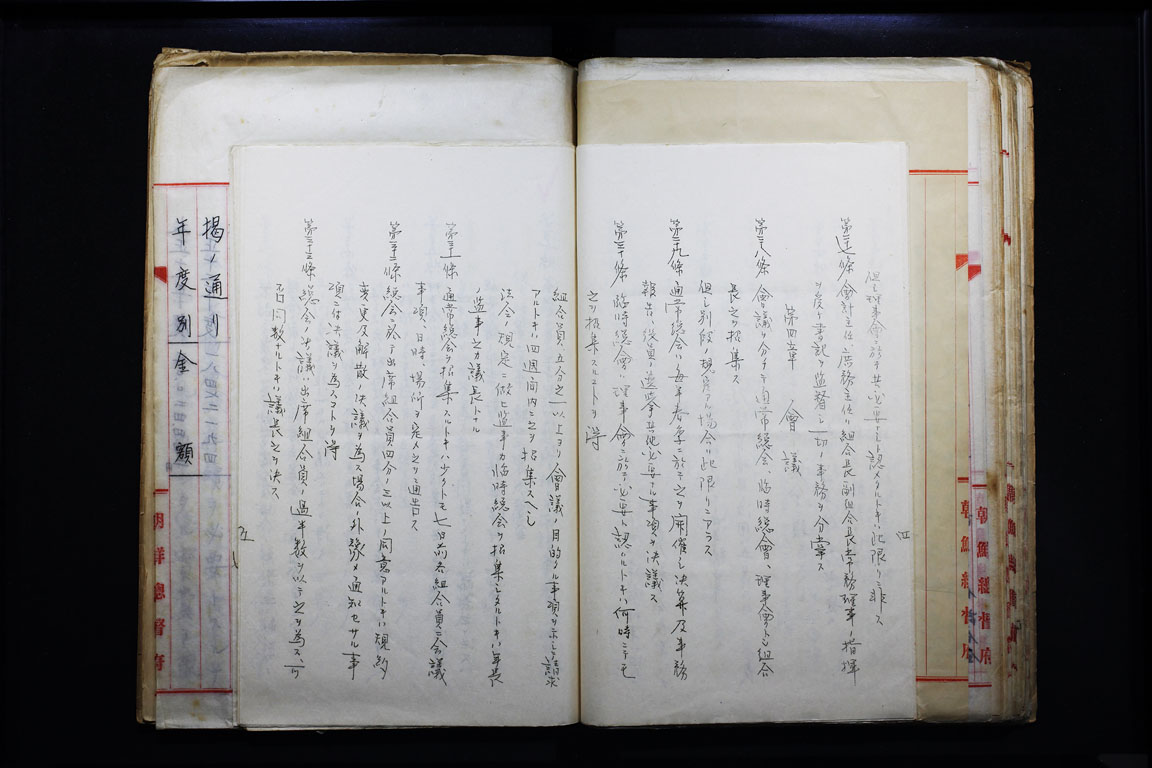 但シ理事會ニ於テ其必要ナシト認メタルトキハ此限リニ非ス
會計主任庶務主任ハ組合長副組合長常務理事ノ指揮
ヲ受ケ書記ヲ監督シ一切ノ事務ヲ分掌ス
第四章 會議
第二十八條 會議ヲ分チテ通常総会、臨時総會、理事會トシ組合
長之ヲ招集ス
但シ別段ノ規定アル場合ハ此限リニアラス
第二十九條 通常総会ハ毎年春季ニ於テ之ヲ開催シ決算及事務
報告、役員ノ選挙其他必要ナル事項ヲ決議ス
第三十條 臨時総會ハ理事會ニ於テ必要ト認ムルトキハ何時ニテモ
之ヲ招集スルコトヲ得
四
組合員五分之一以上ヨリ會議ノ目的タル事項ヲ示シ請求
アルトキハ四週間内ニ之ヲ招集スヘシ
法令ノ規定ニ做ヒ監事カ臨時総会ヲ招集シタルトキハ年長
ノ監事之カ議長トナル
第三十一條 通常総会ヲ招集スルトキハ少クトモ七日前各組合員ニ会議
事項、日時、場所ヲ定メ之ヲ通告ス
第三十二條 総会ニ於テ出席組合員四分ノ三以上ノ同意アルトキハ規約
変更及解散ノ決議ヲ為ス場合ノ外豫メ通知セサル事
項ニ付決議ヲ為スコトヲ得
第三十三條 総会ノ決議ハ出席組合員ノ過半数ヲ以テ之ヲ為ス、
可否同数ナルトキハ議長之ヲ決ス
五
掲ノ通リ
年度別金額
朝鮮總督府
朝鮮總督府
朝鮮總督府